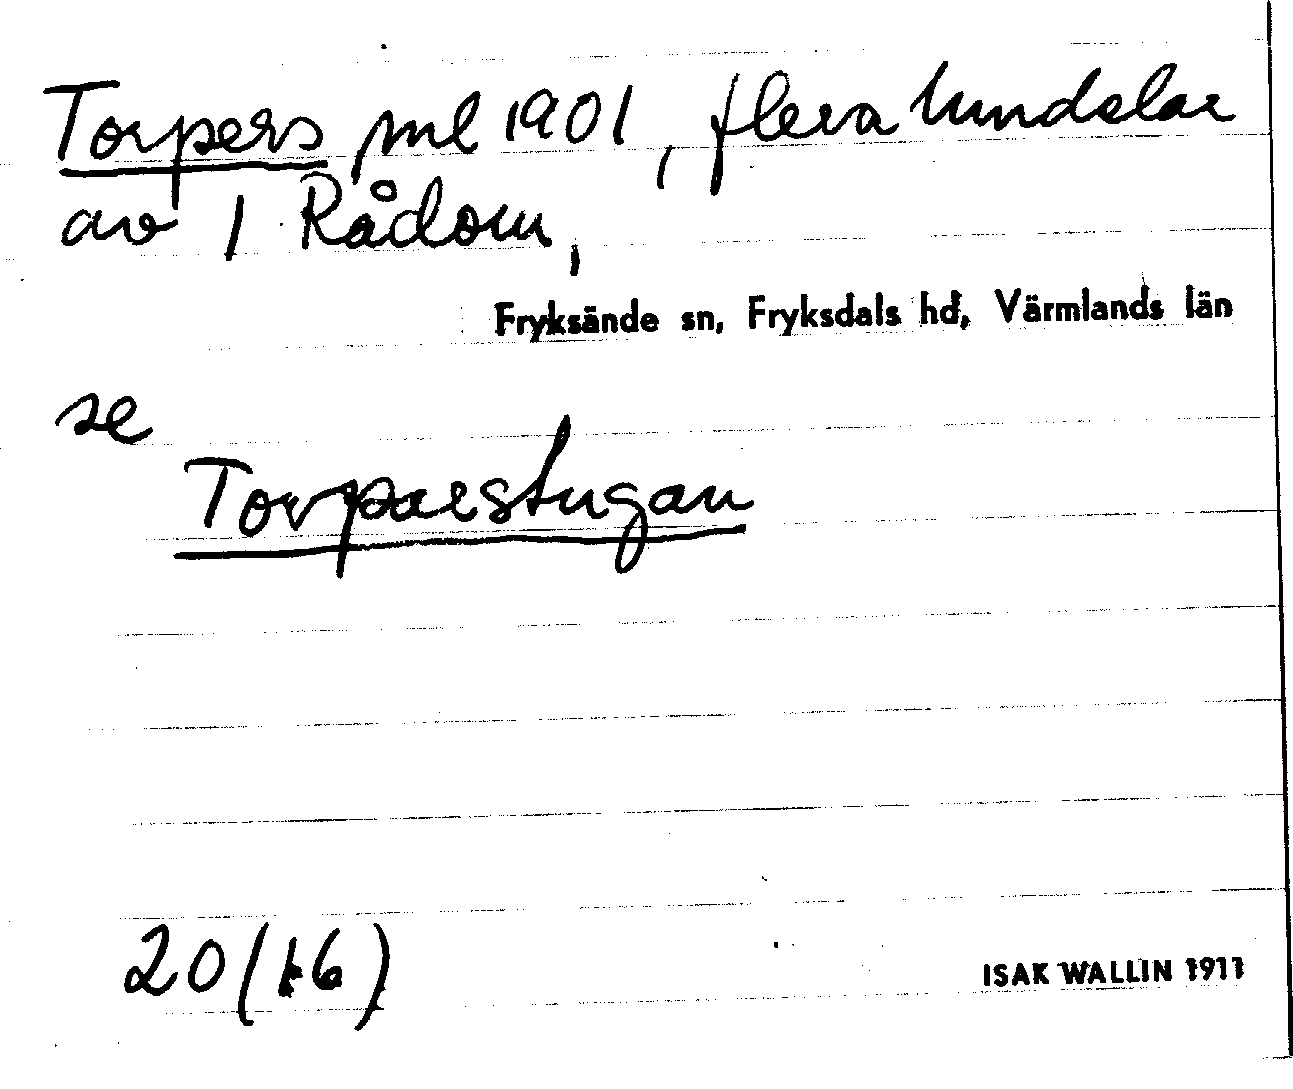 Torpers ml 1901, flera lundelar
av 1 Rådom,
Fryksände sn, Fryksdals hd, Värmlands län
se
Torparstugan
20 (16)
ISAK WALLIN 1911